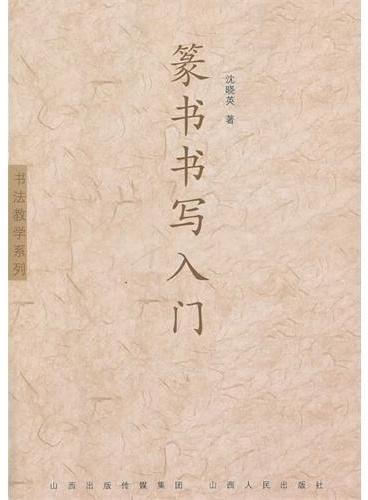 篆书书写入门
沈晓英 著
书法教学系列
山西出版传媒集团 山西人民出版社